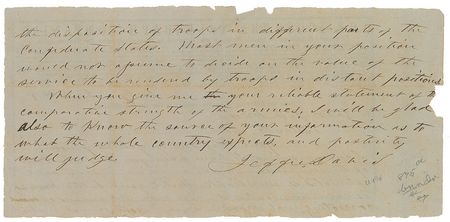 the disposition of troops in different parts of the
Confederate States. Most men in your position
would not assume to decide on the value of the
service to be rendered by troops in distant positions
When you give me your reliable statement of
comparative strength of the armies, I will be glad
also to know the source of your information as to
what the whole country expects, and posterity
will judge.
Jeffn Davis